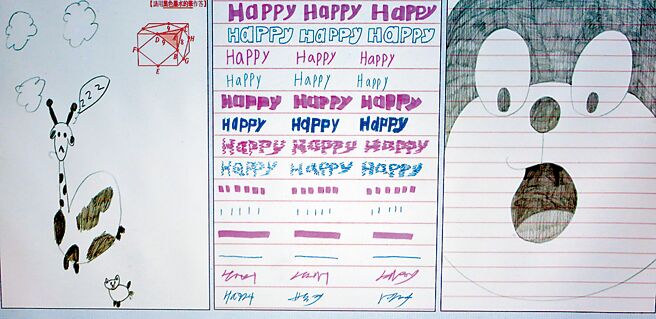 【請用黑色墨水的筆作答】
D A H
F B G
E
Z Z Z
HAPPY HAPPY HAPPY
HAPPY HAPPY HAPPY
HAPPY HAPPY HAPPY
HAPPY HAPPY HAPPY
HAPPY HAPPY HAPPY
HAPPY HAPPY HAPPY
HAPPY HAPPY HAPPY
HAPPY HAPPY HAPPY